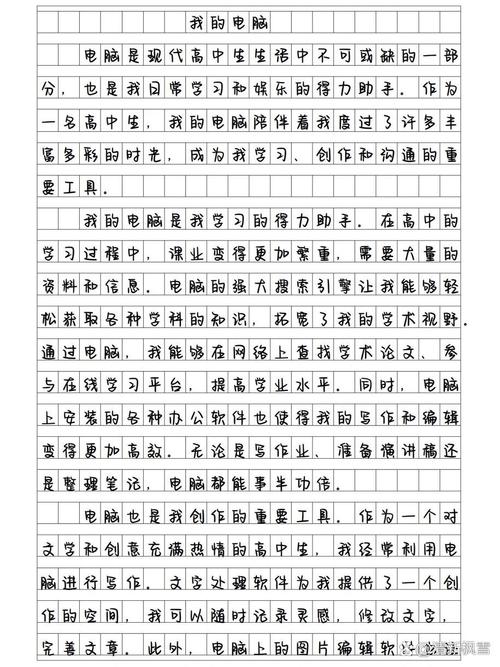 我的电脑
电脑是现代高中生生活中不可或缺的一部
分，也是我日常学习和娱乐的得力助手．作为
一名高中生，我的电脑陪伴着我度过了许多丰
富多彩的时光，成为我学习、创作和沟通的重
要工具．
我的电脑是我学习的得力助手．在高中的
学习过程中，课业变得更加繁重，需要大量的
资料和信息．电脑的强大搜索引擎让我能够轻
松获取各种学科的知识，拓宽了我的学术视野．
通过电脑，我能够在网络上查找学术论文、参
与在线学习平台，提高学业水平．同时，电脑
上安装的各种办公软件也使得我的写作和编辑
变得更加高效．无论是写作业、准备演讲稿还
是整理笔记，电脑都能事半功倍．
电脑也是我创作的重要工具．作为一个对
文学和创意充满热情的高中生，我经常利用电
脑进行写作．文字处理软件为我提供了一个创
作的空间，我可以随时记录灵感，修改文字，
完善文章．此外，电脑上的图片编辑软